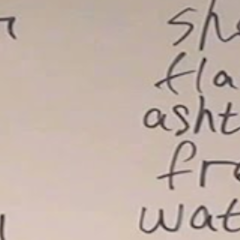 sh
fla
asht
fr
wat